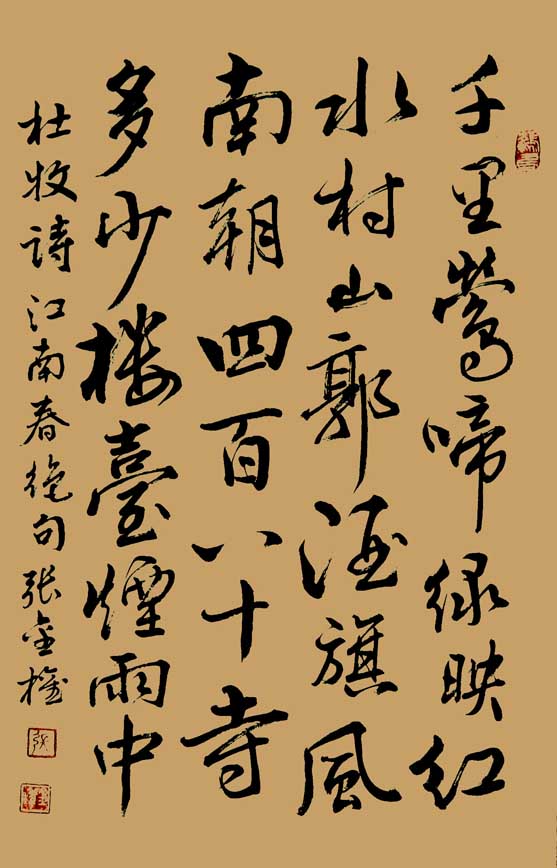 千里鶯啼绿映红
水村山郭酒旗風
南朝四百八十寺
多少楼臺煙雨中
杜牧诗江南春绝句张金權